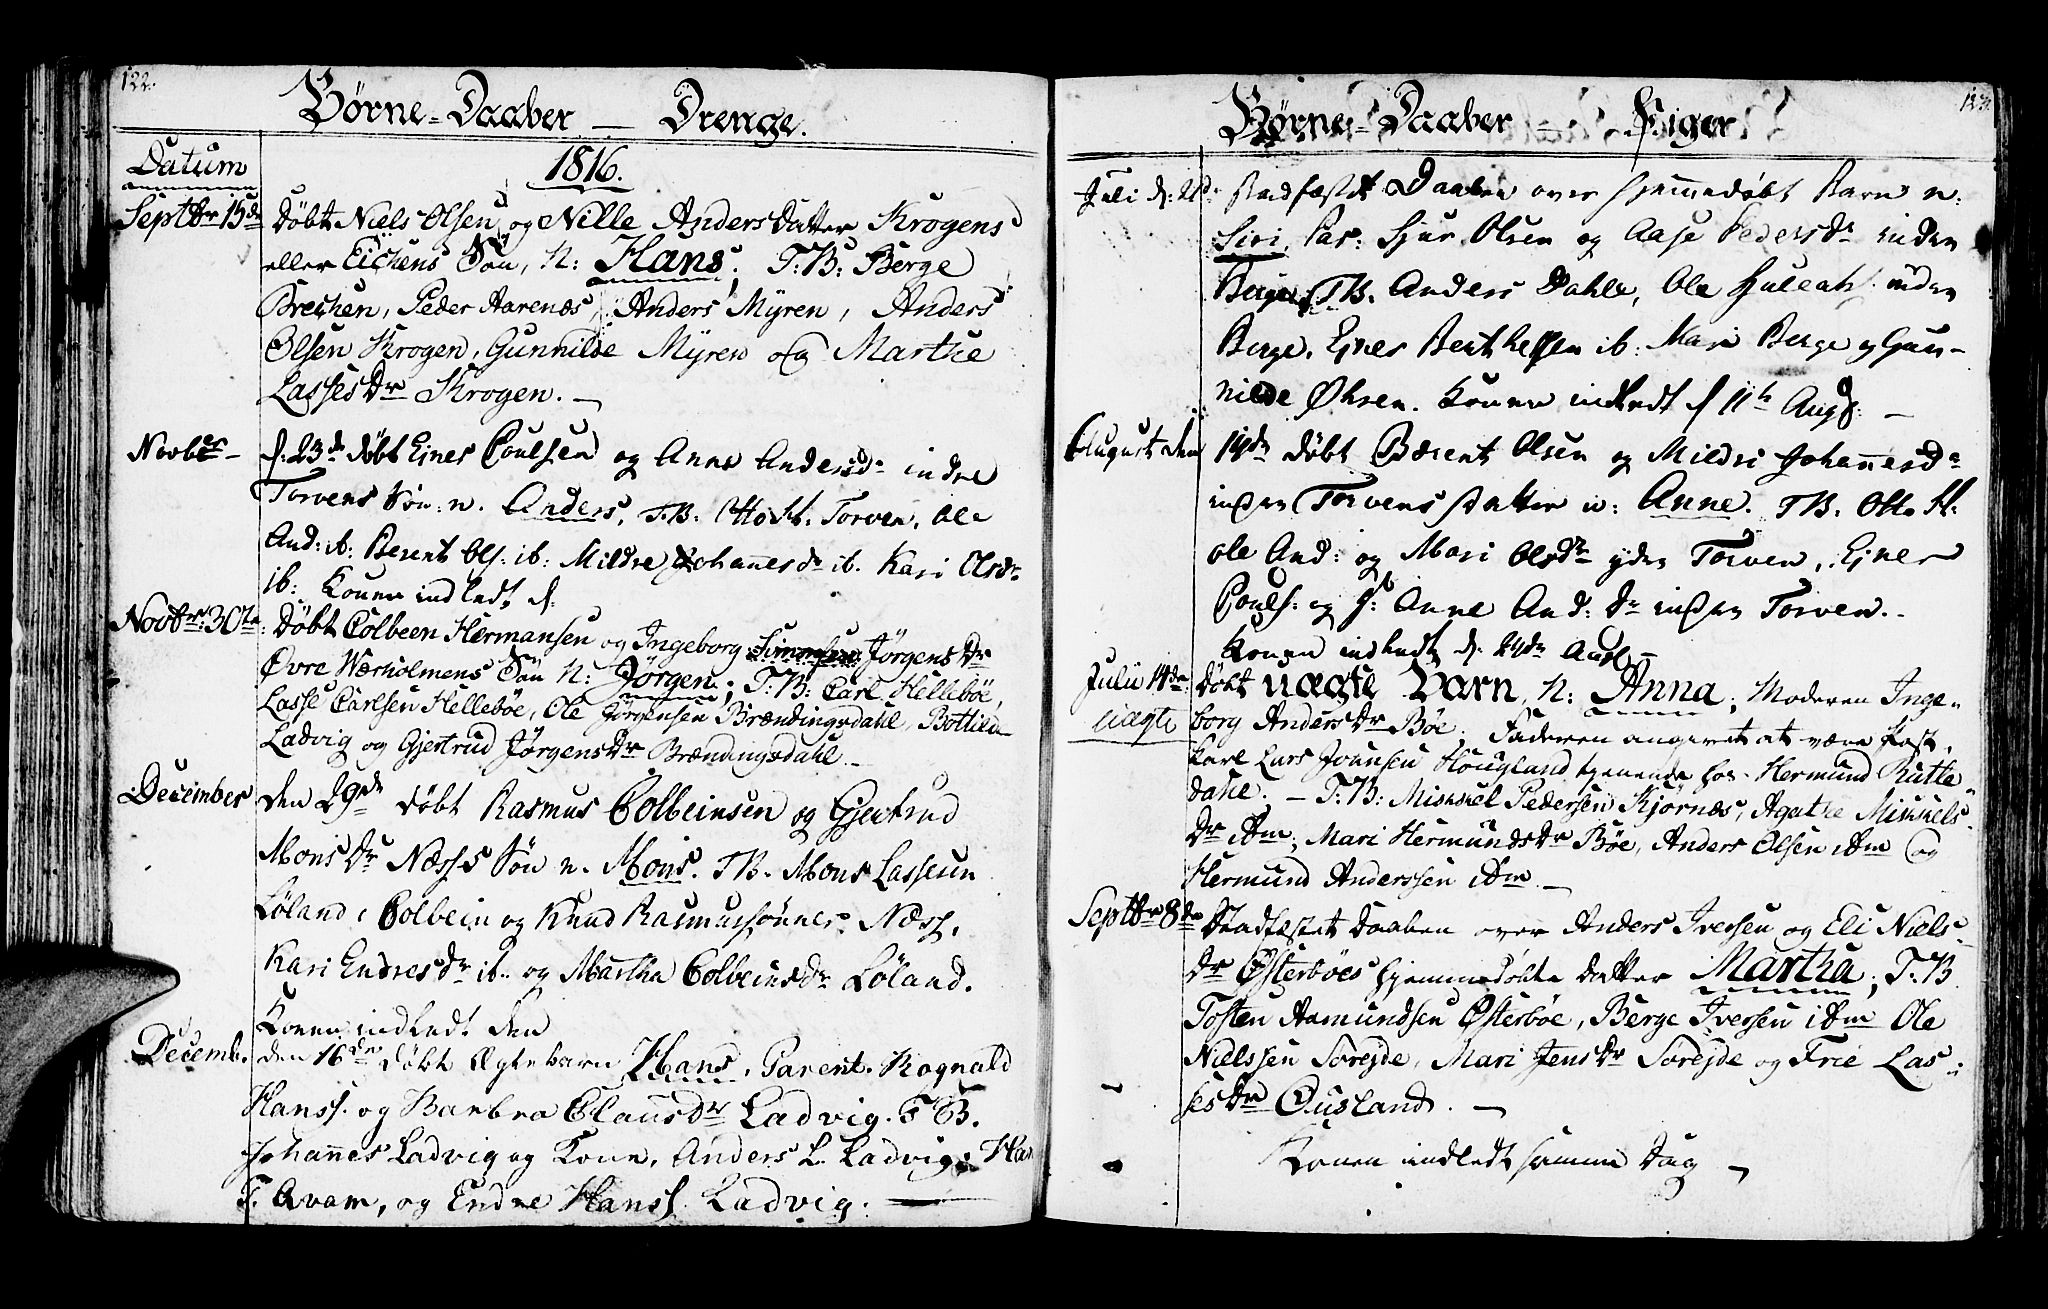 122.
Børne-Daaber — Drenge.
Datum
1816.
Septbr 15de Døbt Niels Olsen og Nille Anders Datter Krogens
eller Eichens Søn, N: Hans. T:B: Berge
Brechen, Peder Aarenæs, Anders Myren, Anders
Olsen Krogen, Gunnilde Myren og Marthe
Lasses Dr Krogen. —
Novber — d. 23de døbt Ejner Poulsen og Anne Andersdr indre
Torvens Søn: n. Anders. T.B. Otto H. Torven, Ole
And: ib. Berent Ols: ib: Mildre Johannesdr ib. Kari Olsdr
ib: Konen indledt d:
Novbr: 30te: Døbt Colbeen Hermansen og Ingeborg Jørgens Dr
Øvre Wærholmens Søn N: Jørgen; T:B: Carl Hellebøe,
Lasse Carlsen Hellebøe, Ole Jørgensen Brændingsdahl, Bottilda
Ladvig og Gjertrud Jørgens Dr Brændingsdahl. —
December den 29de døbt Rasmus Colbeinsen og Gjertrud
Mons Dr Næsses Søn n. Mons. T.B. Mons Lassesen
Løland, Colbein og Knud Rasmussønner Næss,
Kari Endresdr ib.. og Martha Colbeinsdr Løland.
Konen indledt den
Decemb. den 16de døbt Ægte barn Hans, Parent. Rognald
Hanss. og Barbra Clausdr Ladvig. T.B.
Johannes Ladvig og Kone, Anders L. Ladvig, Han
T. Qvam, og Endre Hanss. Ladvig. —
123
Børne-Daaber — Piger
Juli d: 21de Stadfæstet Daaben over hjemmedøbt Barn n.
Siri, Par: Sjur Olsen og Aase Pedersdr inden
Berge; T.B. Anders Dahle, Ole inden
Berge, Ejner Berthelsen ib: Mari Berge og Gun-
nilde Øhren. Konen indledt d 11te Aug. —
August den 14de døbt Bærent Olsen og Mildri Johannesdr
inden Torvens Datter n: Anne. T.B. Otto H.
Ole And: og Mari Olsdr yden Torven, Ejner
Pouls: og Anne And: Dr inden Torven. -
Konen indledt d. 24de Aug. —
Julii 14de: Døbt uægte Barn, N: Anna; Moderen Inge-
uægte borg Anders Dr Bøe. Faderen angivet at være
Karl Lars Joansen Hougland tjenende hos Hermund Rutle
dahl. — T:B: Mickkel Pedersen Kjørnæs, Agathe Mickkels
Dr ibm; Mari Hermunds Dr Bøe, Anders Olsen ibm og
Hermund Anderssen ibm. —
Septbr 8de Stadfæstet Daaben over Anders Iversen og Eli Niels-
Dr Østerbøes hjemmedøbte Datter Martha; T:B
Tosten Aamundsen Østerbøe, Berge Iversen ibm Ole
Nielssen Sørejde, Mari Jens Dr Sørejde og Frie Las-
ses Dr Øusland. —
Konen indledt samme Dag —